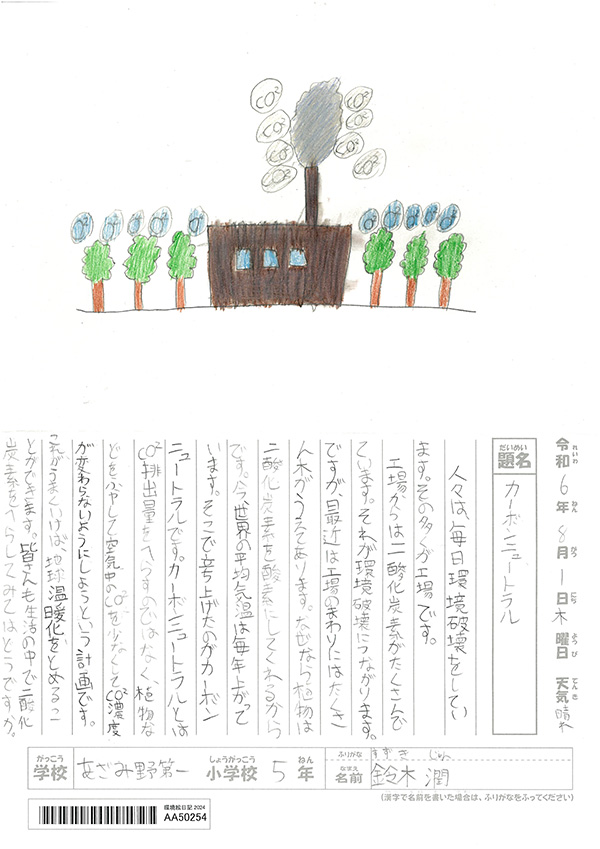 CO²
CO²
CO²
CO²
CO²
CO²
CO²
CO²
O²
O²
O²
O²
O²
O²
O²
O²
O²
令和6年8月1日木曜日 天気晴れ
れいわ ねん がつ にち ようび てんき
だいめい
題名
カーボンニュートラル
人々は、毎日環境破壊をしてい
ます。その多くが工場です。
工場からは二酸化炭素がたくさんで
ています。それが環境破壊につながります。
ですが、最近は工場のまわりにはたくさ
ん木がうえてあります。なぜなら植物は
二酸化炭素を酸素にしてくれるから
です。今、世界の平均気温は毎年上がって
います。そこで立ち上げたのがカーボン
ニュートラルです。カーボンニュートラルとは
CO²排出量をへらすのではなく、植物な
どをふやして空気中のCO²を少なくしてCO²濃度
が変わらないようにしようという計画です。
これがうまくいけば、地球温暖化をとめるこ
とができます。皆さんも生活の中で二酸化
炭素をへらしてみてはどうですか。
がっこう しょうがっこう ねん
学校 あざみ野第一 小学校 5年
ふりがな すずき じゅん
なまえ
名前 鈴木 潤
(漢字で名前を書いた場合は、ふりがなをふってください)
環境絵日記 2024
AA50254